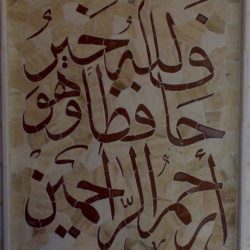 فالله خير
حافظا وهو
أرحم الراحمين